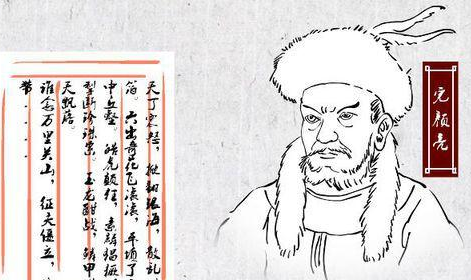 天丁震怒，掀翻银海，散乱
箔。六出奇花飞滚滚，平填了
中丘壑。皓虎颠狂，素麟猖獗，
掣断珍珠索。玉龙酣战，鳞甲
天飘落。
谁念万里关山，征夫僵立，
带...
完颜亮